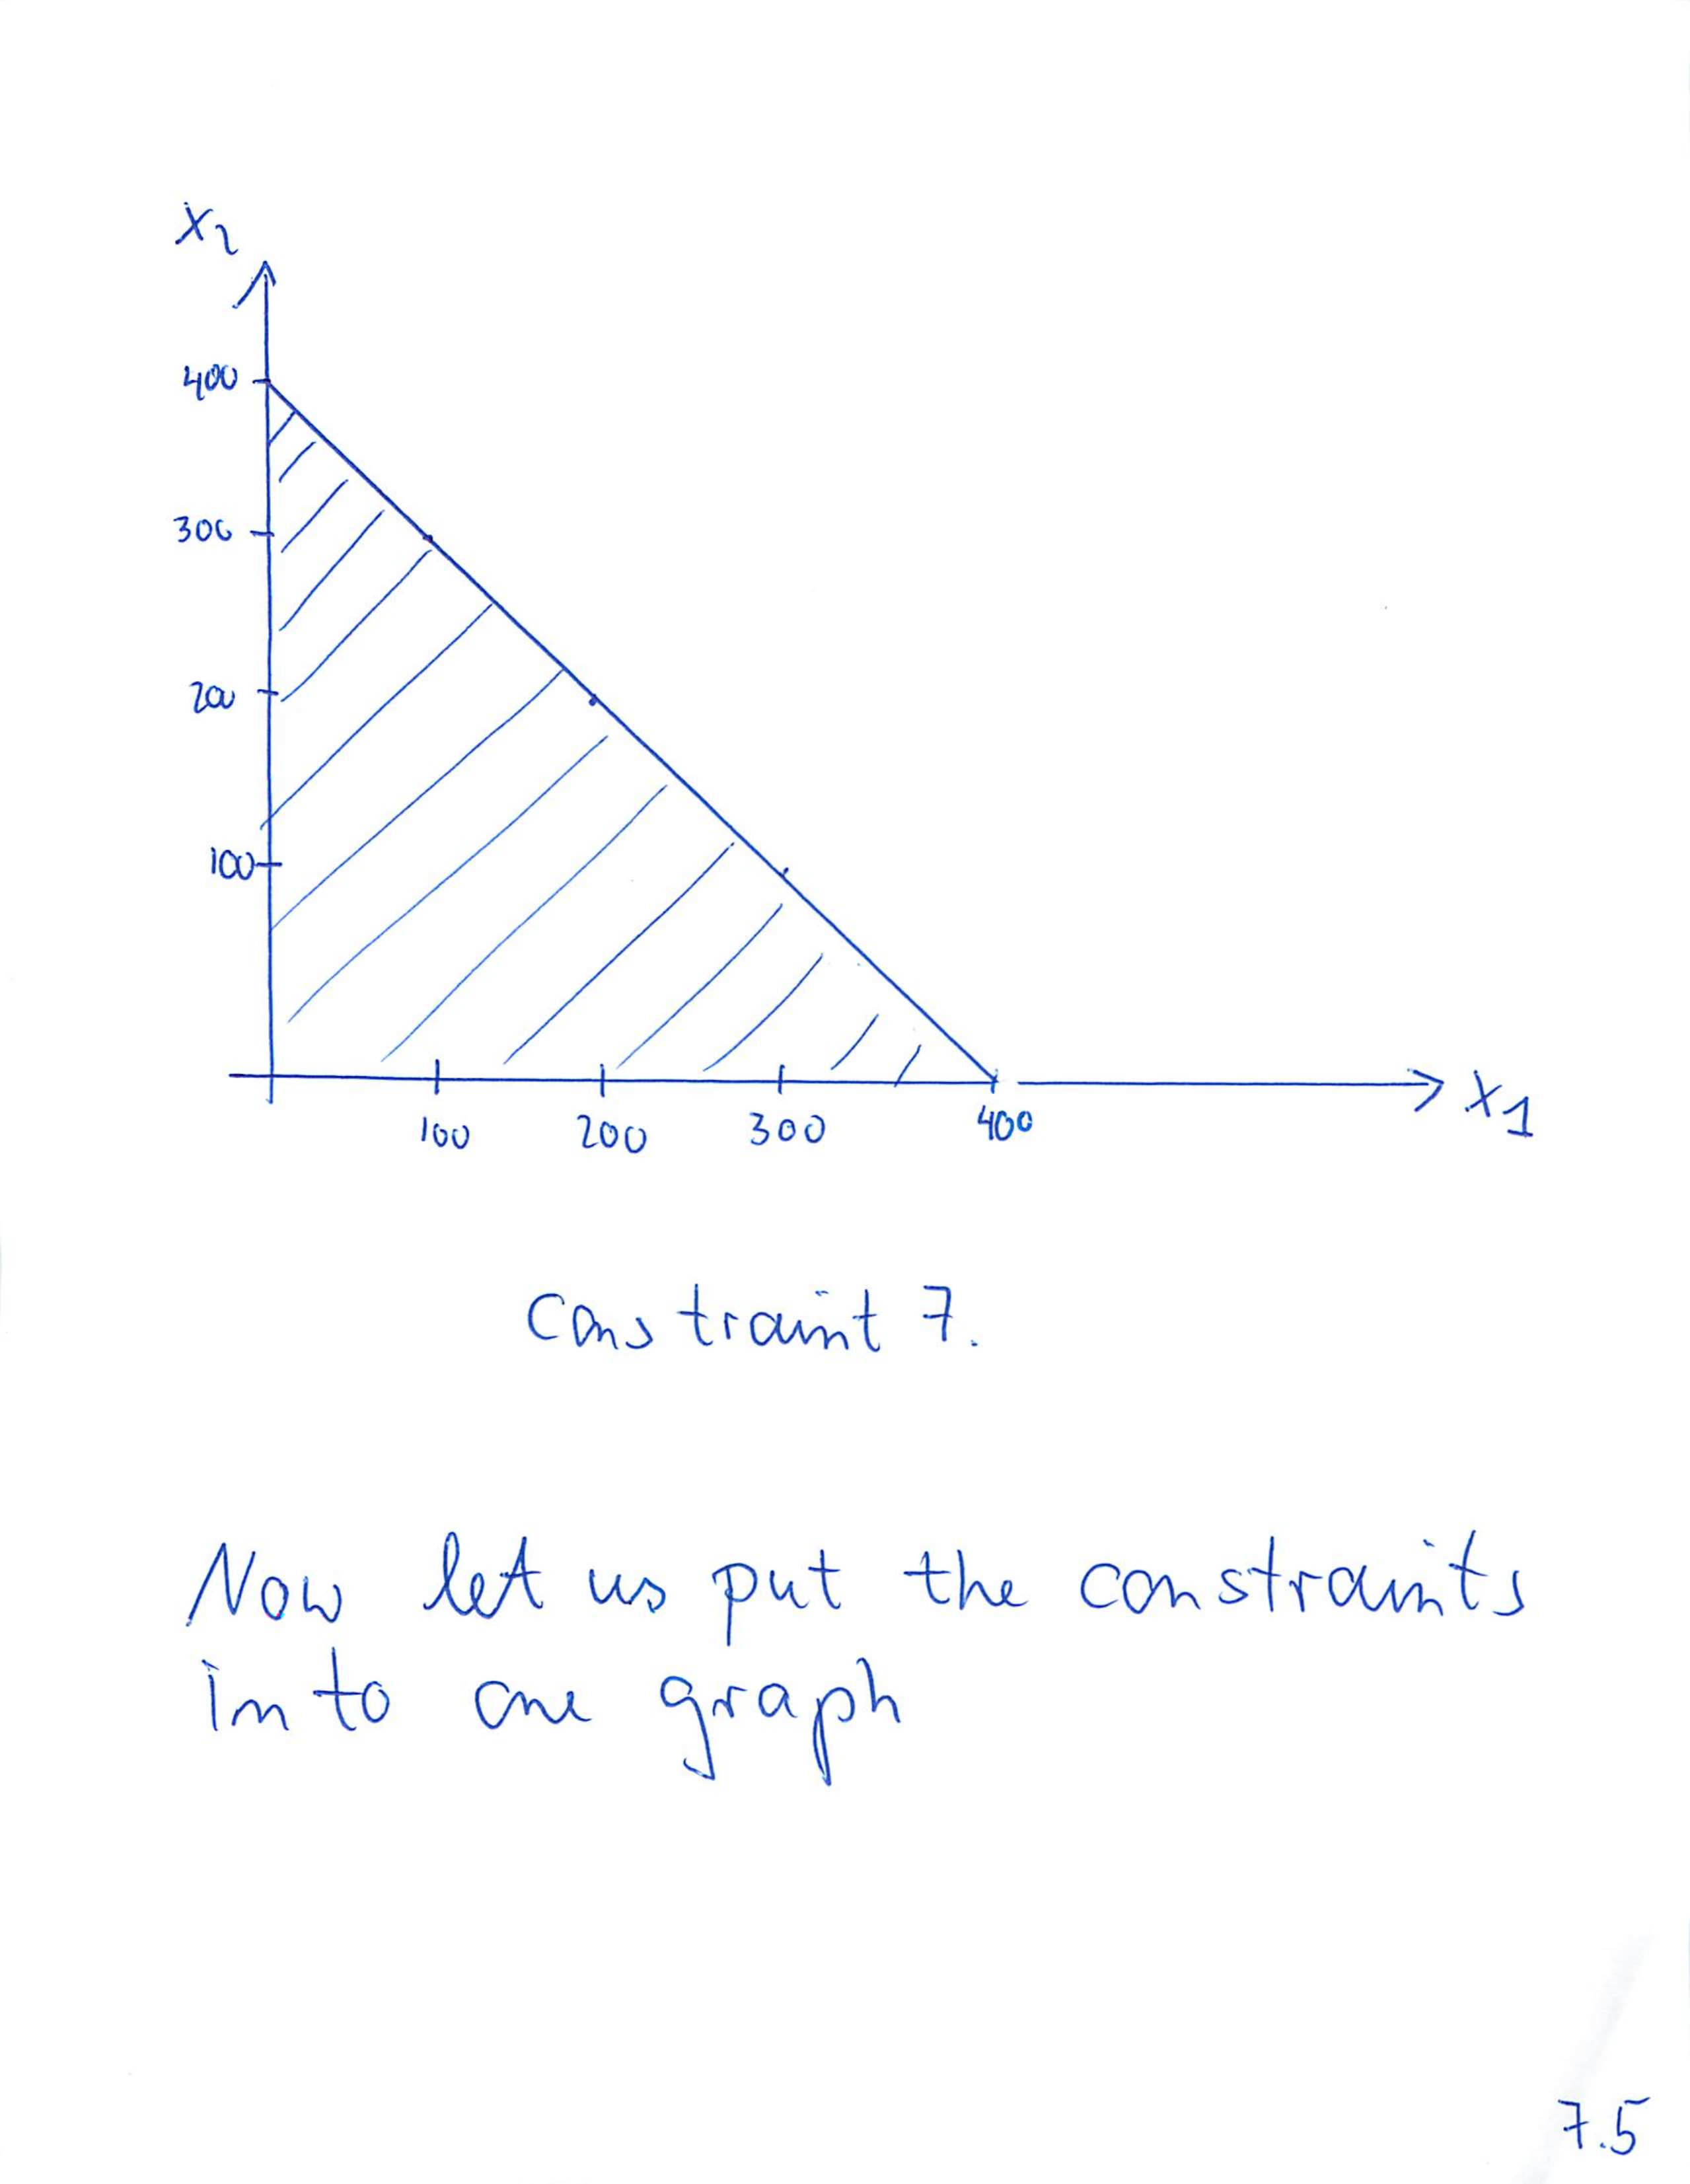 x2
400
300
200
100
100 200 300 400 x1
Constraint 7.
Now let us put the constraints
into one graph
7.5